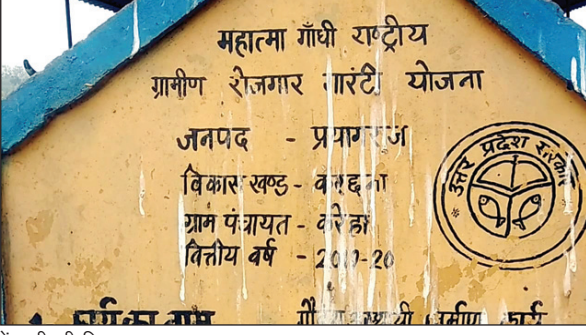 महात्मा गाँधी राष्ट्रीय
ग्रामीण रोजगार गारंटी योजना
जनपद - प्रयागराज
विकास खण्ड - करछना
ग्राम पंचायत - करेहा
वित्तीय वर्ष - 2019-20
उत्तर प्रदेश सरकार
कार्य का नाम निर्माण कार्य